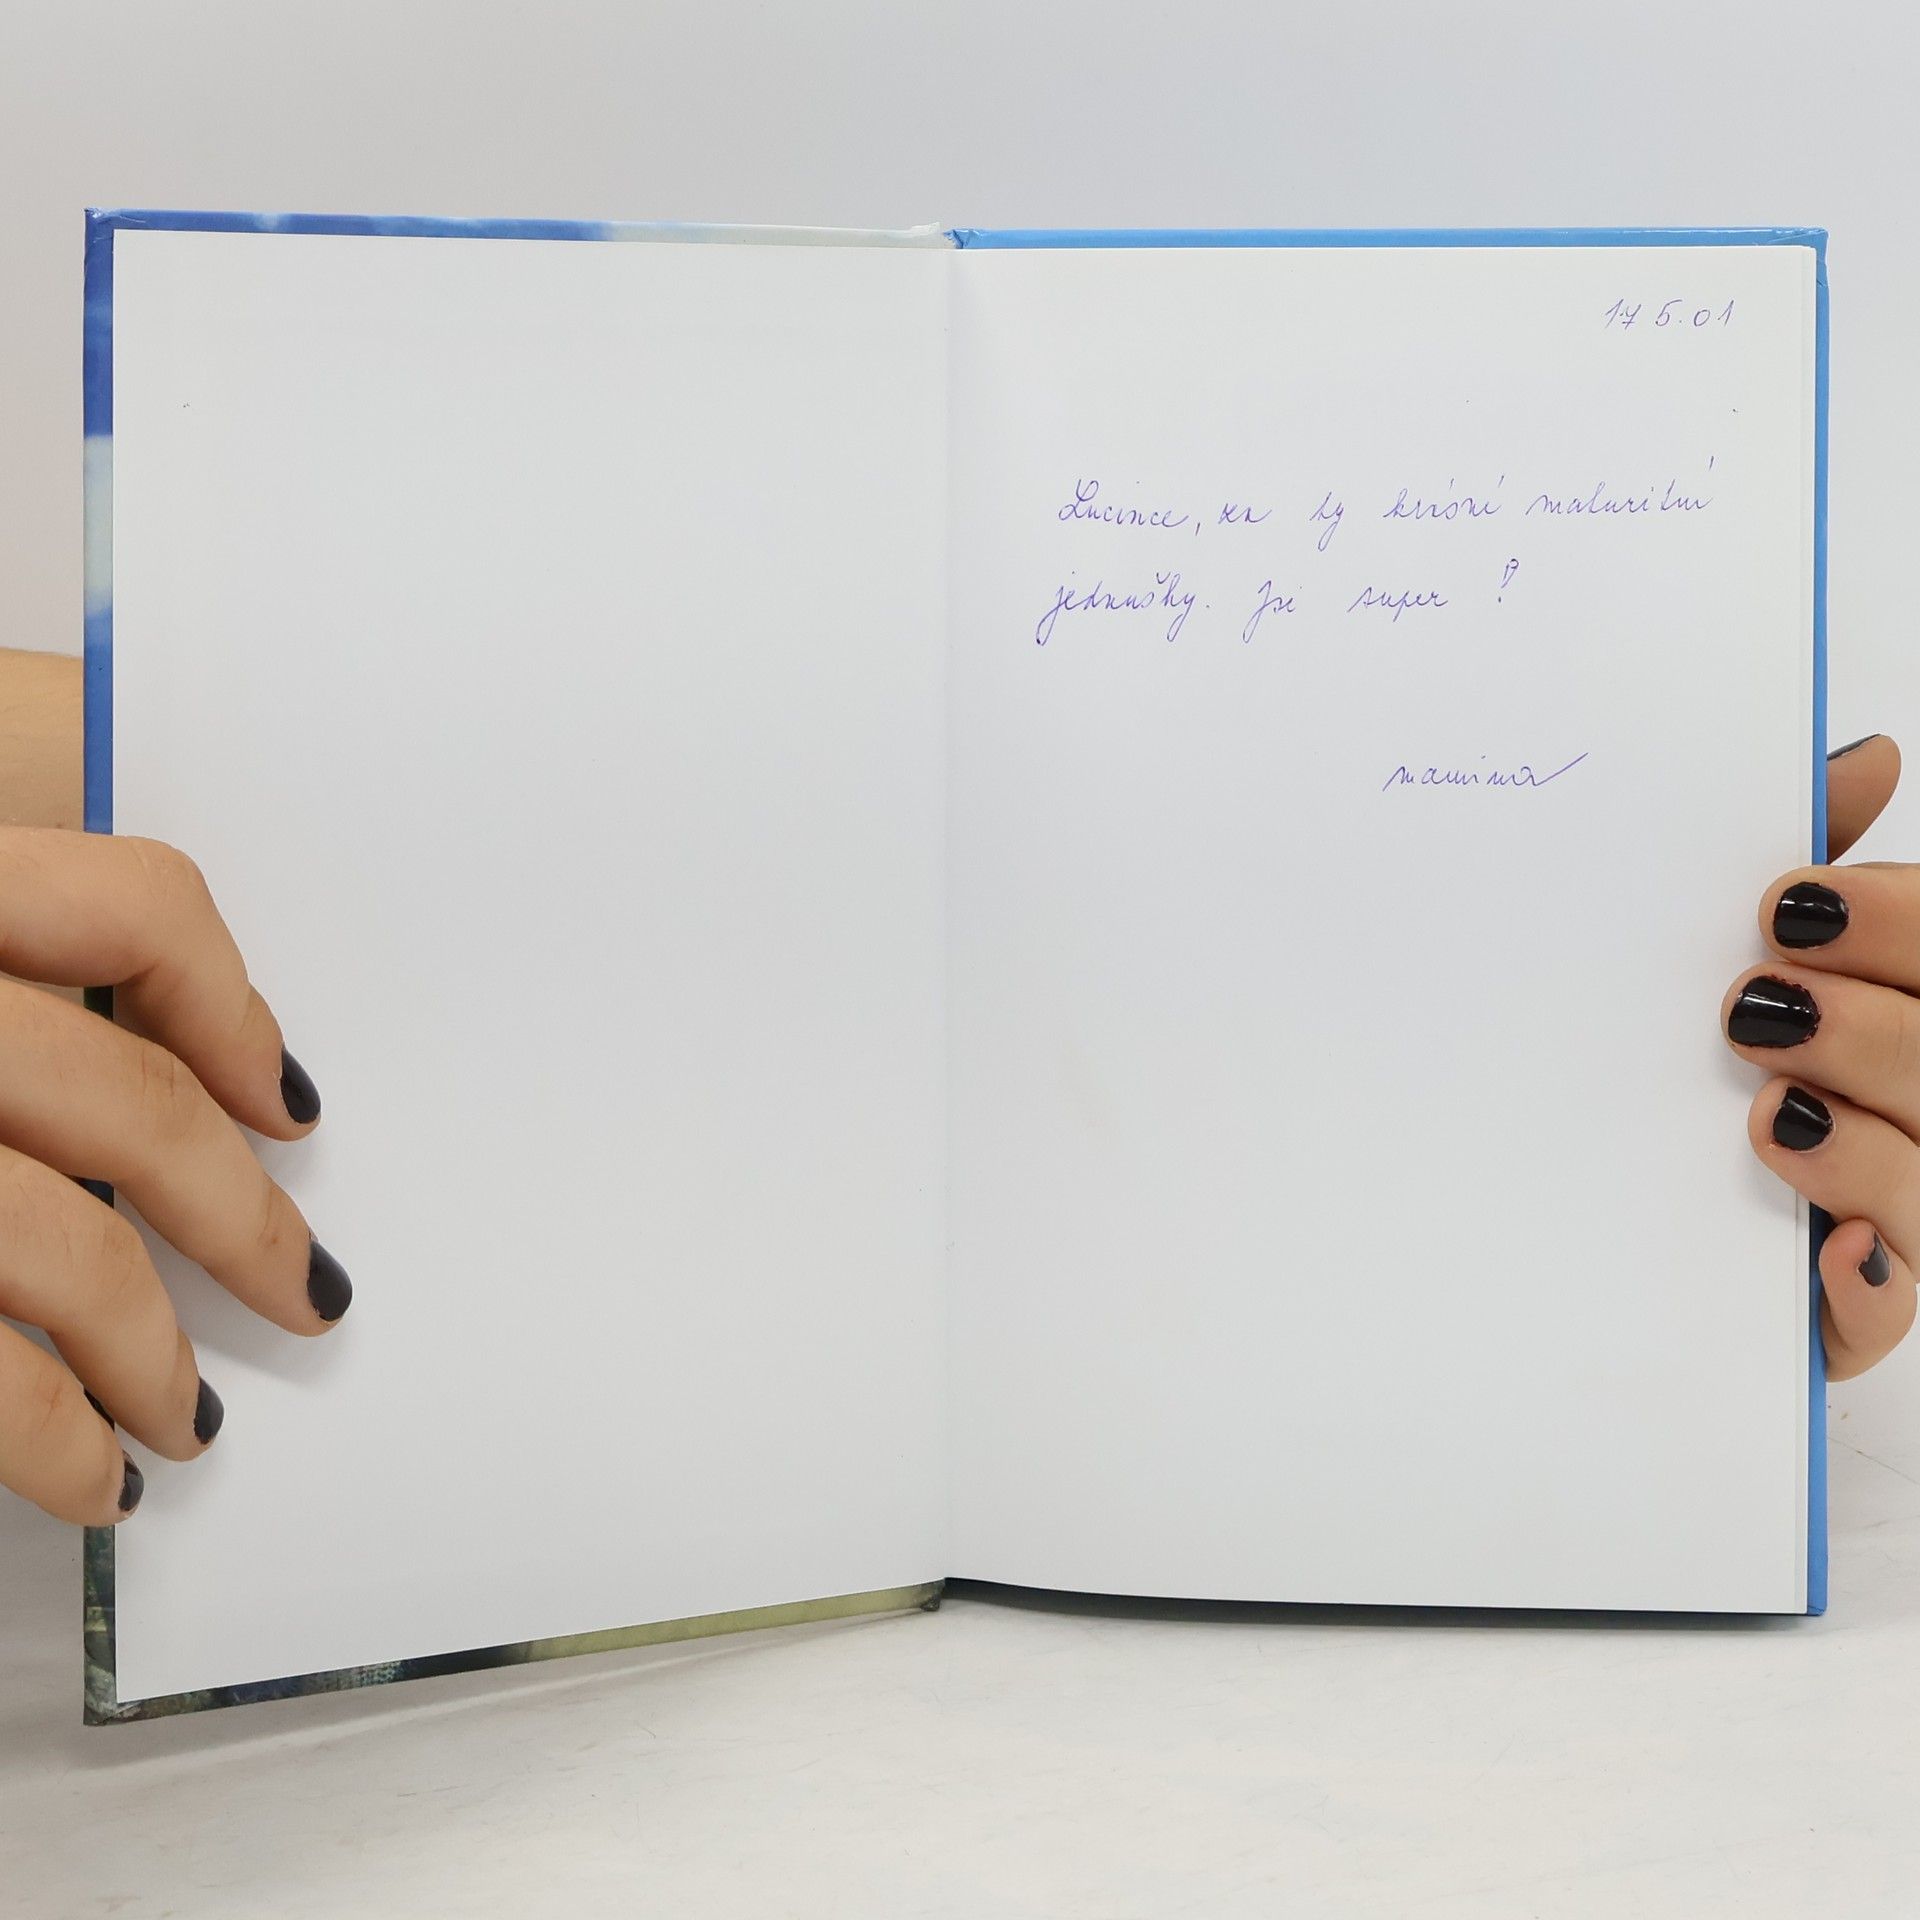 17 5.01
Lucince, za ty krásné maturitní
jedničky. Jsi super!
mamina